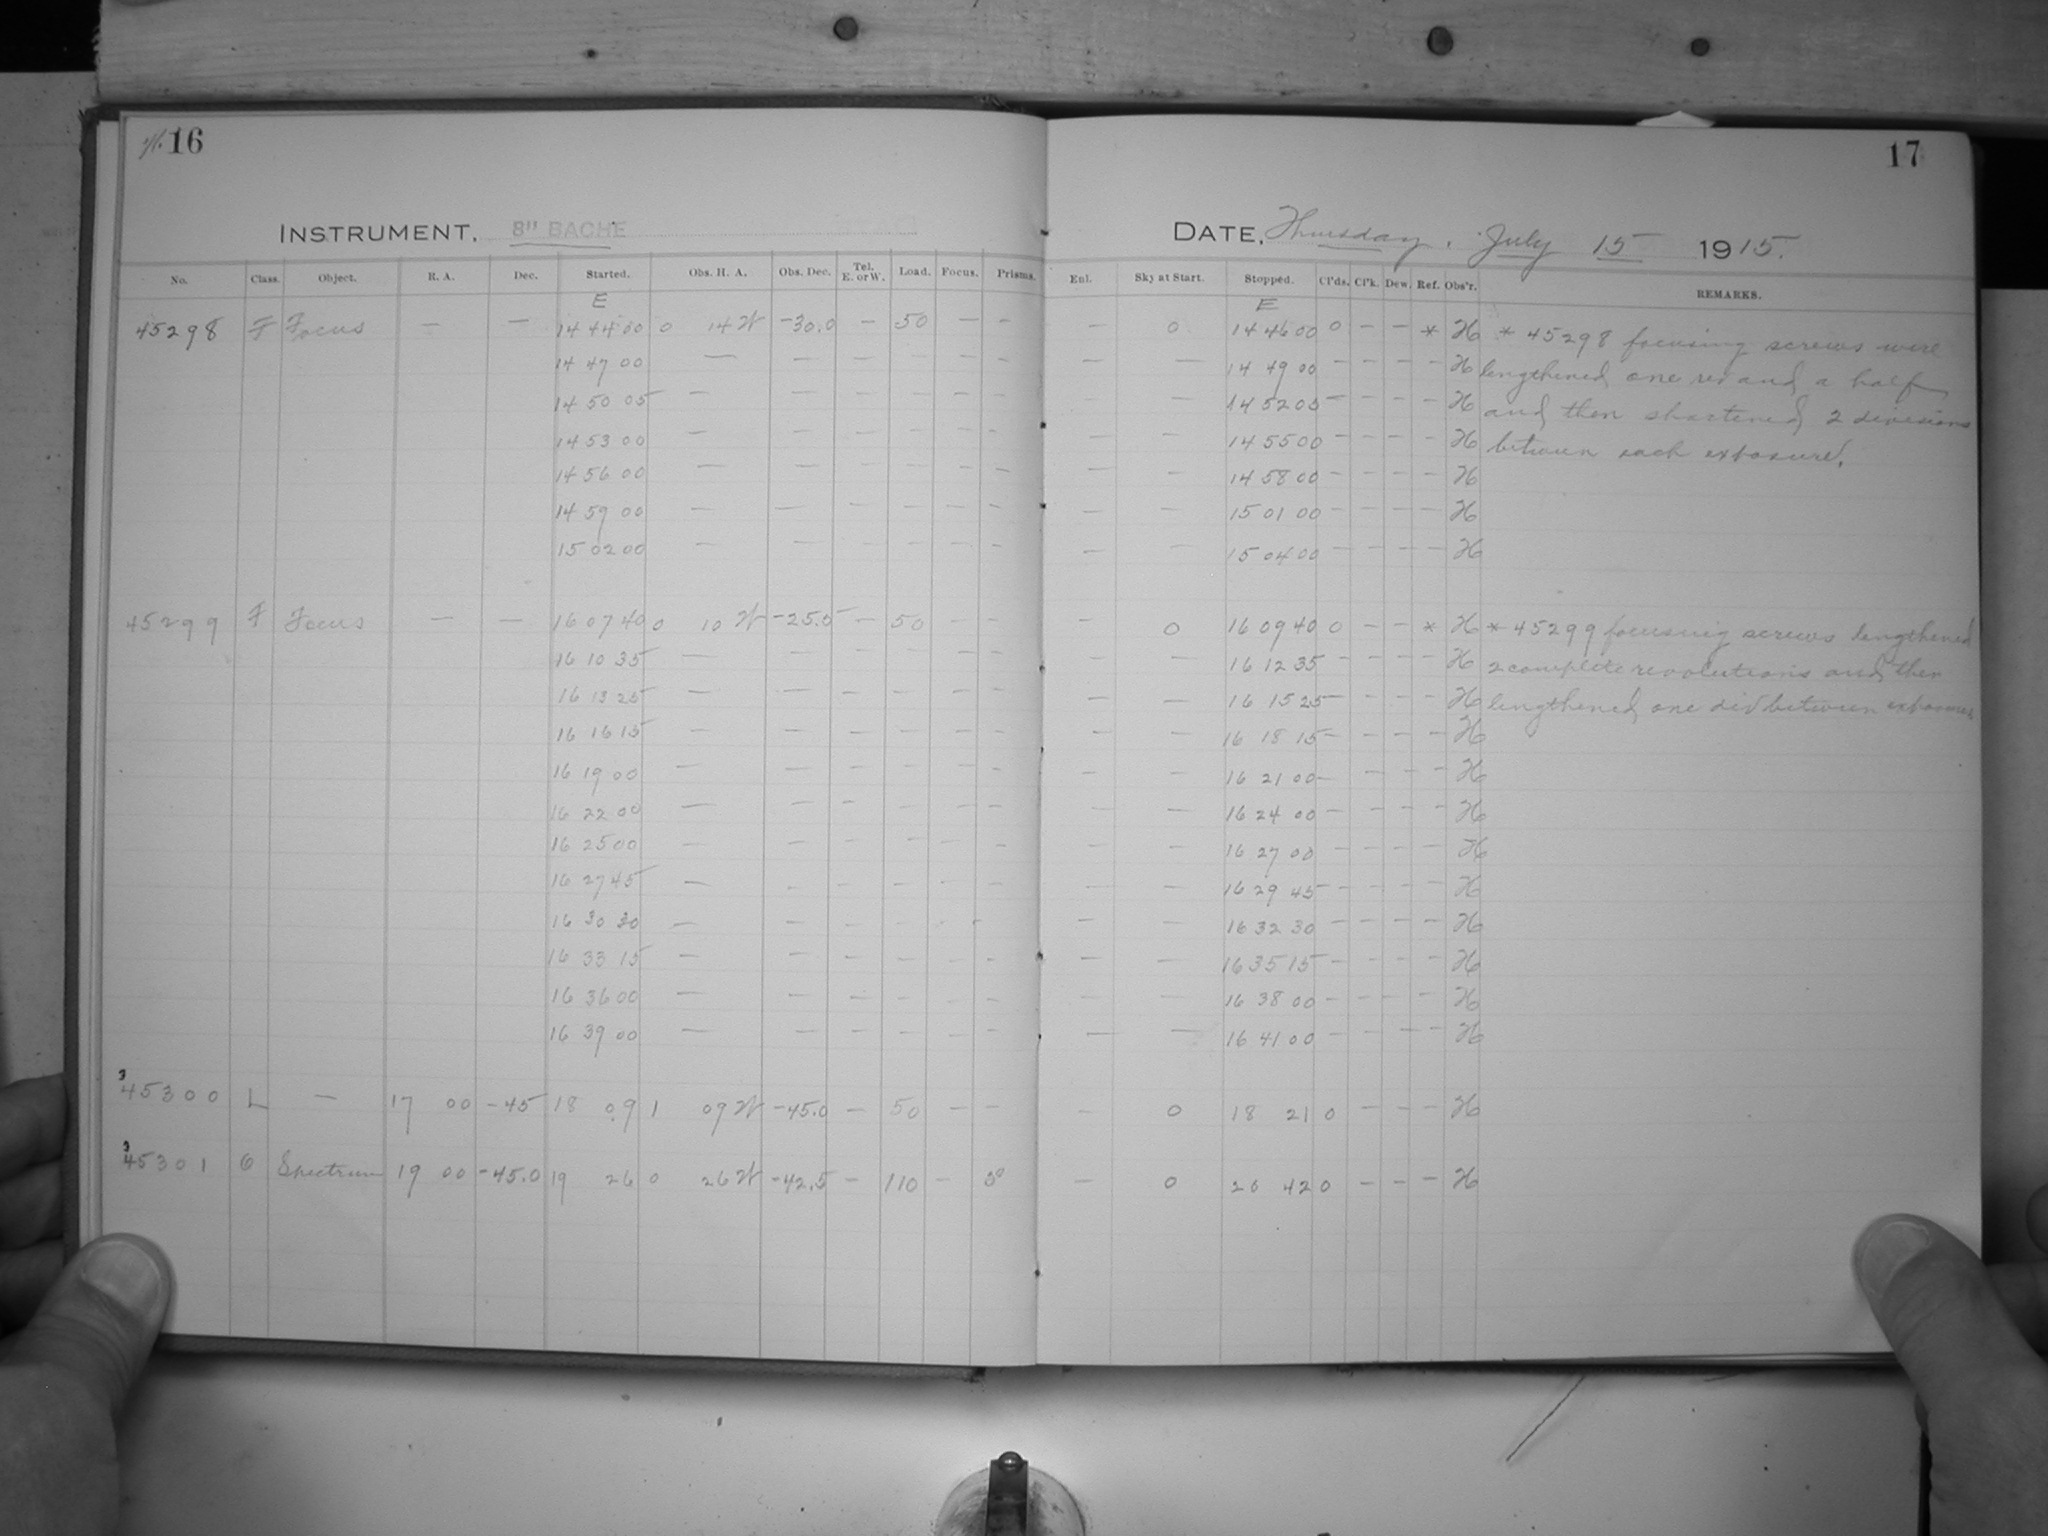 16
17
INSTRUMENT, 8" BACHE
DATE, Thursday, July 15 1915.
No. Class. Object. R. A. Dec. Started. Obs. H. A. Obs. Dec. Tel. E. or W. Load. Focus. Prisms. Enl. Sky at Start. Stopped. Cl'ds. Cl'k. Dew. Ref. Obs'r. REMARKS.
E E
45298 F Focus — — 14 44 00 0 14 W -30.0 — 50 — — — 0 14 46 00 0 — — * H * 45298 focusing screws were
14 47 00 — — — — — — — — 14 49 00 — — — — H lengthened one rev and a half
14 50 05 — — — — — — — — 14 52 05 — — — — H and then shortened 2 divisions
14 53 00 — — — — — — — — 14 55 00 — — — — H between each exposure.
14 56 00 — — — — — — — — 14 58 00 — — — — H
14 59 00 — — — — — — — — 15 01 00 — — — — H
15 02 00 — — — — — — — — 15 04 00 — — — — H
45299 F Focus — — 16 07 40 0 10 W -25.5 — 50 — — — 0 16 09 40 0 — — * H * 45299 focusing screws lengthened
16 10 35 — — — — — — — — 16 12 35 — — — — H 2 complete revolutions and then
16 13 25 — — — — — — — — 16 15 25 — — — — H lengthened one div between exposures
16 16 15 — — — — — — — — 16 18 15 — — — — H
16 19 00 — — — — — — — — 16 21 00 — — — — H
16 22 00 — — — — — — — — 16 24 00 — — — — H
16 25 00 — — — — — — — — 16 27 00 — — — — H
16 27 45 — — — — — — — — 16 29 45 — — — — H
16 30 30 — — — — — — — — 16 32 30 — — — — H
16 33 15 — — — — — — — — 16 35 15 — — — — H
16 36 00 — — — — — — — — 16 38 00 — — — — H
16 39 00 — — — — — — — — 16 41 00 — — — — H
3
45300 L — 17 00 -45 18 09 1 09 W -45.0 — 50 — — — 0 18 21 0 — — — H
3
45301 O Spectrum 19 00 -45.0 19 26 0 26 W -42.5 — 110 — — 0 20 42 0 — — — H